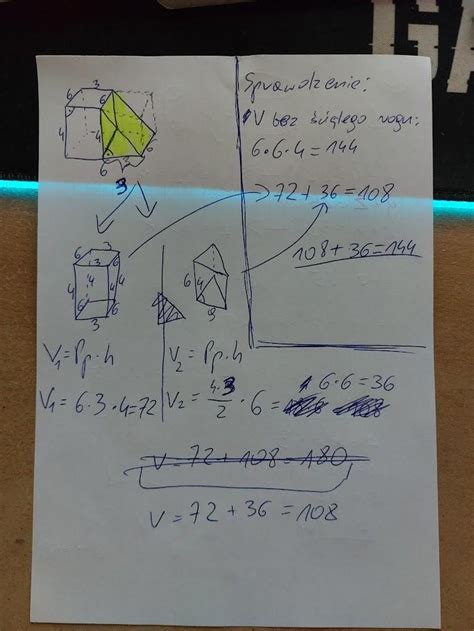 GA
3
6
6
6
4
4
6
6
6
3
Sprawdzenie:
V bez ściętego rogu:
6·6·4=144
72+36=108
108+36=144
6
3
6
3
4
4
4
6
6
3
6
4
3
V₁=Pp·h
V₁=6·3·4=72
V₂=Pp·h
V₂=4·3/2·6=6·6=36
V=72+108=180
V=72+36=108